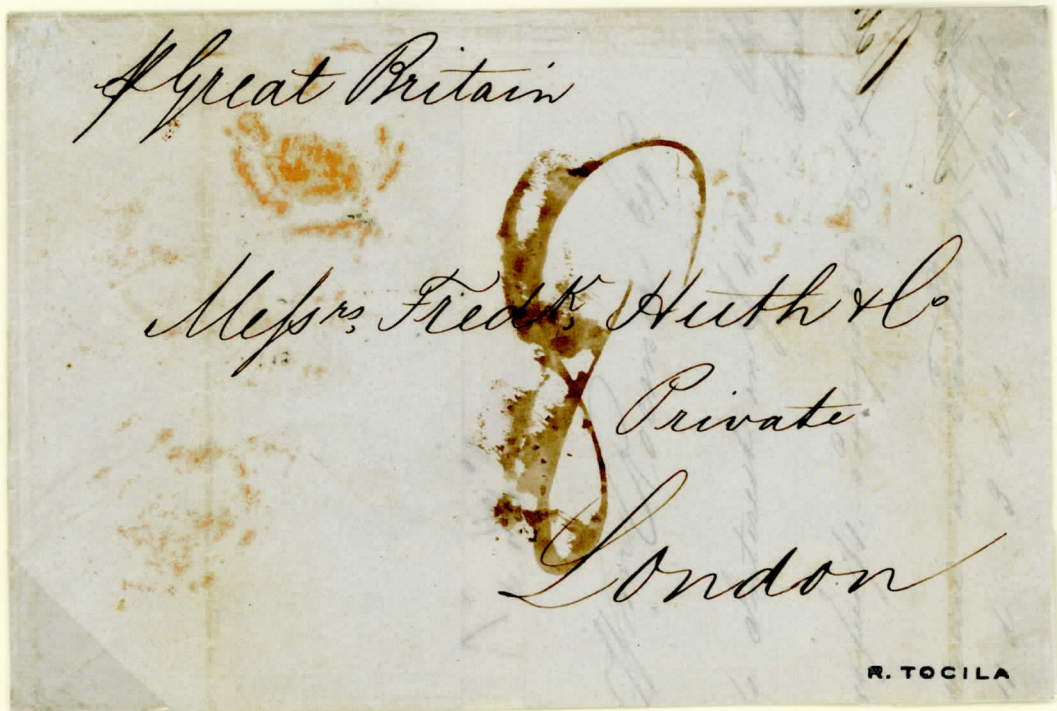 p Great Britain
8
Messrs, Fredk, Huth & Co
Private
London
R. TOCILA